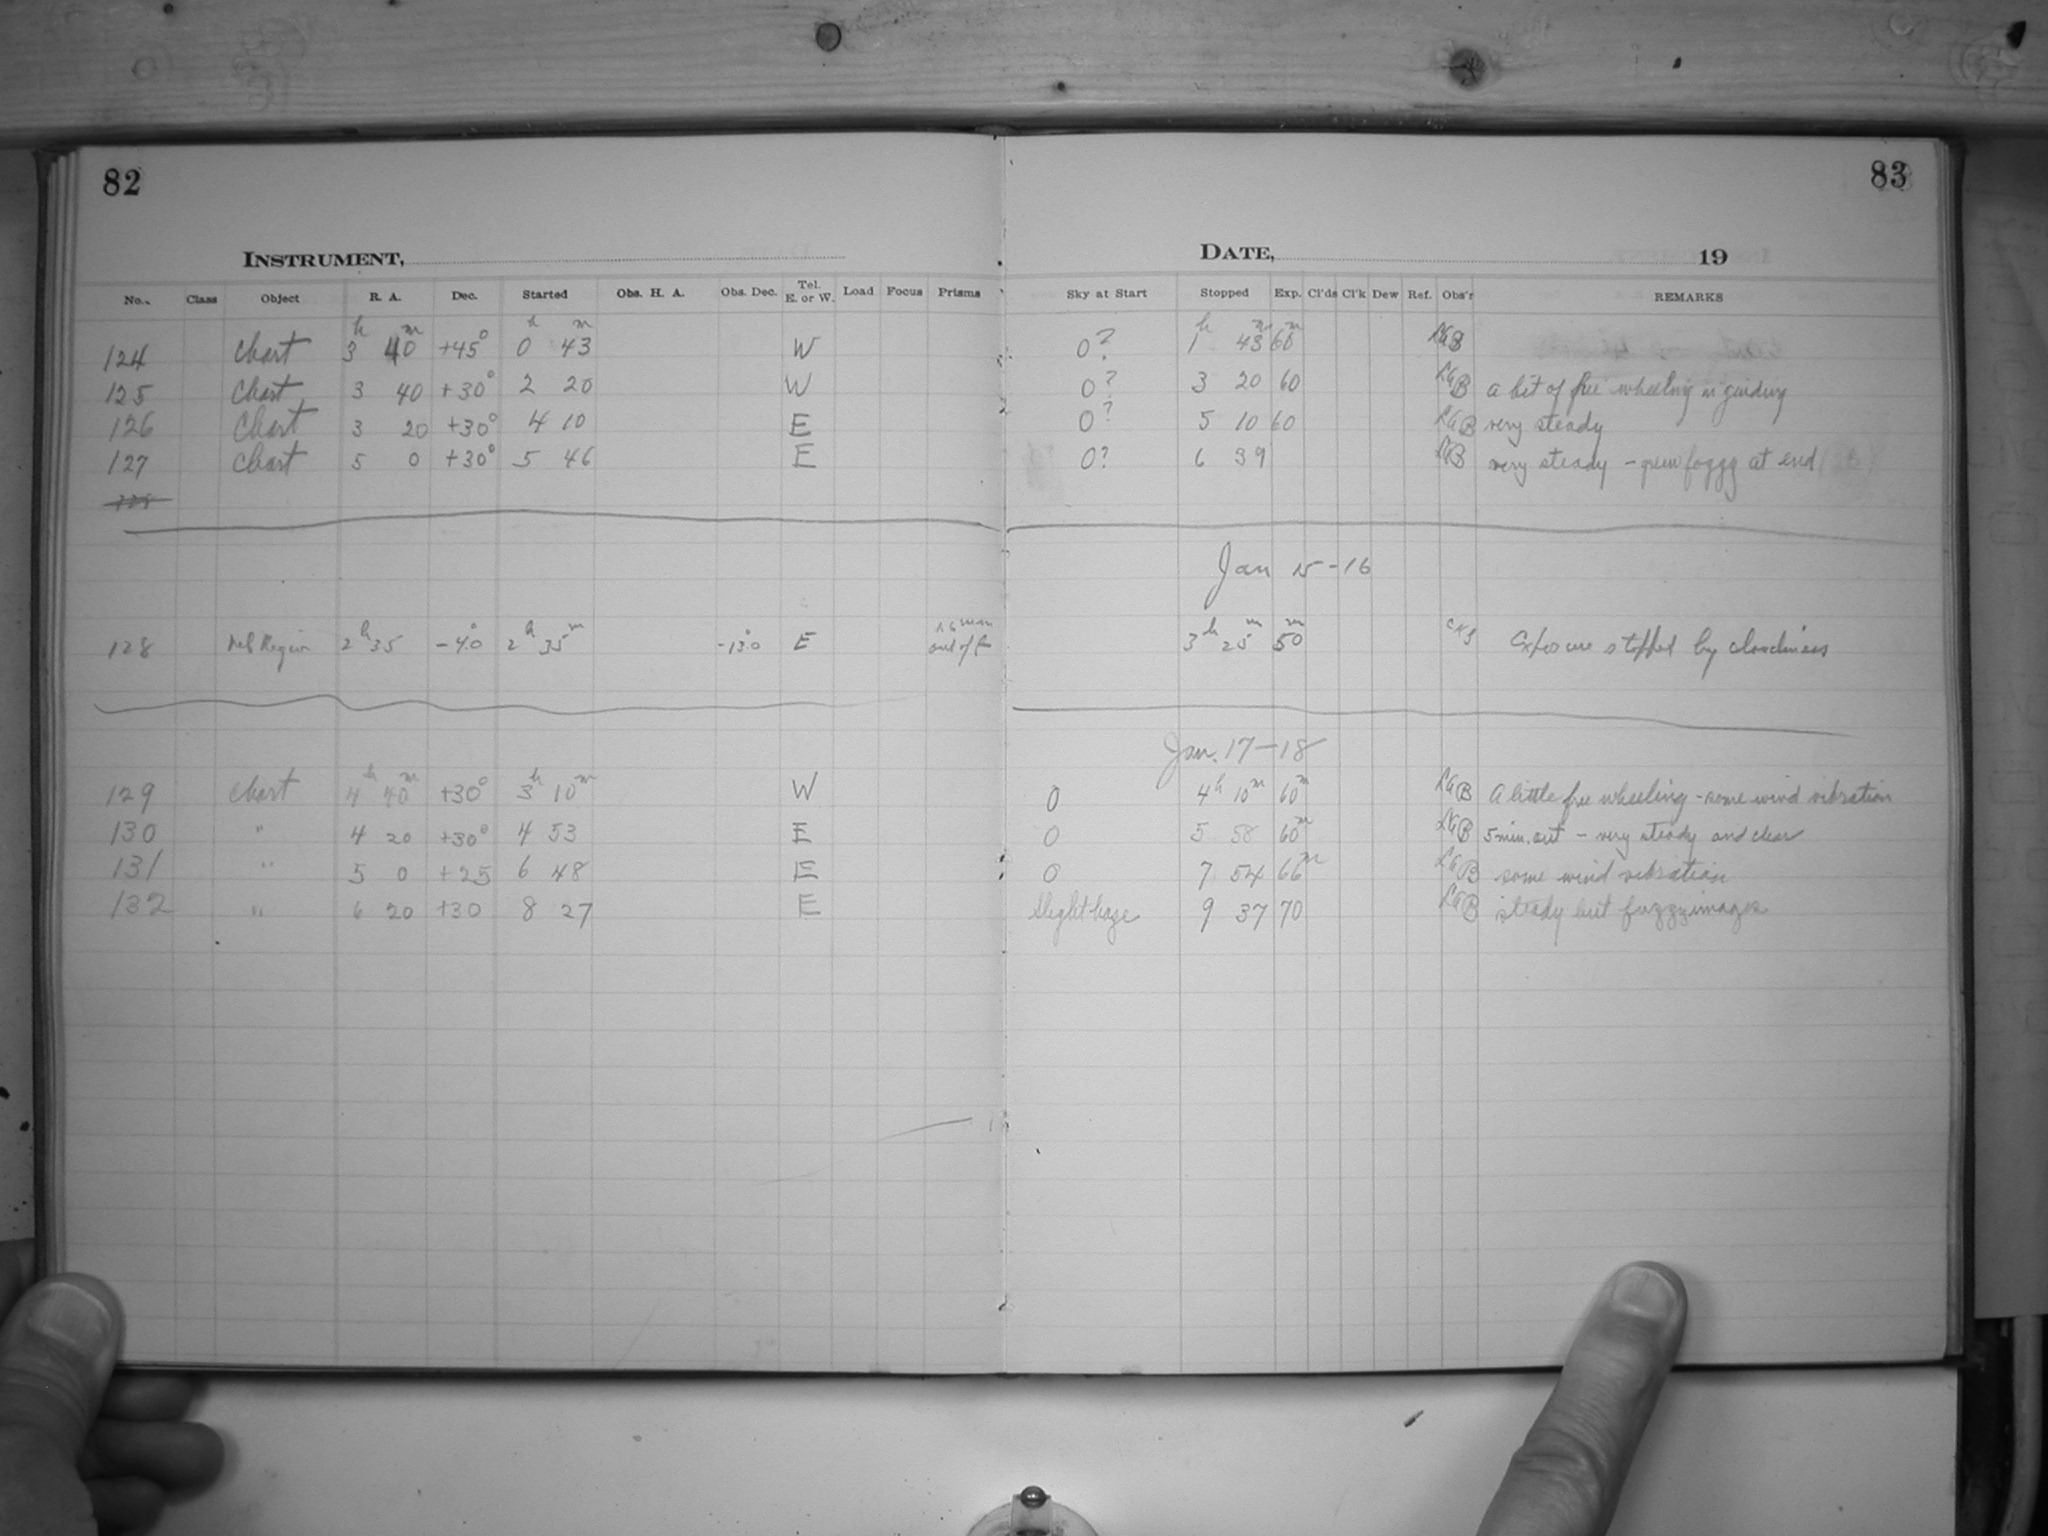 82
83
INSTRUMENT,
DATE, 19
No. Class Object R. A. Dec. Started Obs. H. A. Obs. Dec. Tel. E. or W. Load Focus Prisms Sky at Start Stopped Exp. Cl'ds Cl'k Dew Ref. Obs'r REMARKS
124 Chart 3h 40m +45° 0h 43m W 0? 1h 43m 60m LGB
125 Chart 3 40 +30° 2 20 W 0? 3 20 60 LGB a bit of free wheeling in guiding
126 Chart 3 20 +30° 4 10 E 0? 5 10 60 LGB very steady
127 Chart 5 0 +30° 5 46 E 0? 6 39 LGB very steady - grew foggy at end
Jan 15-16
128 Neb Region 2h 35 -4°.0 2h 35m -13°.0 E out of f 3h 25m 50m CKS Exposure stopped by cloudiness
Jan. 17-18
129 Chart 4h 40m +30° 3h 10m W 0 4h 10m 60m LGB A little free wheeling - some wind vibration
130 " 4 20 +30° 4 53 E 0 5 58 60m LGB 5 min. out - very steady and clear
131 " 5 0 +25 6 48 E 0 7 54 66m LGB some wind vibration
132 " 6 20 +30 8 27 E Slight haze 9 37 70 LGB steady but fuzzy images